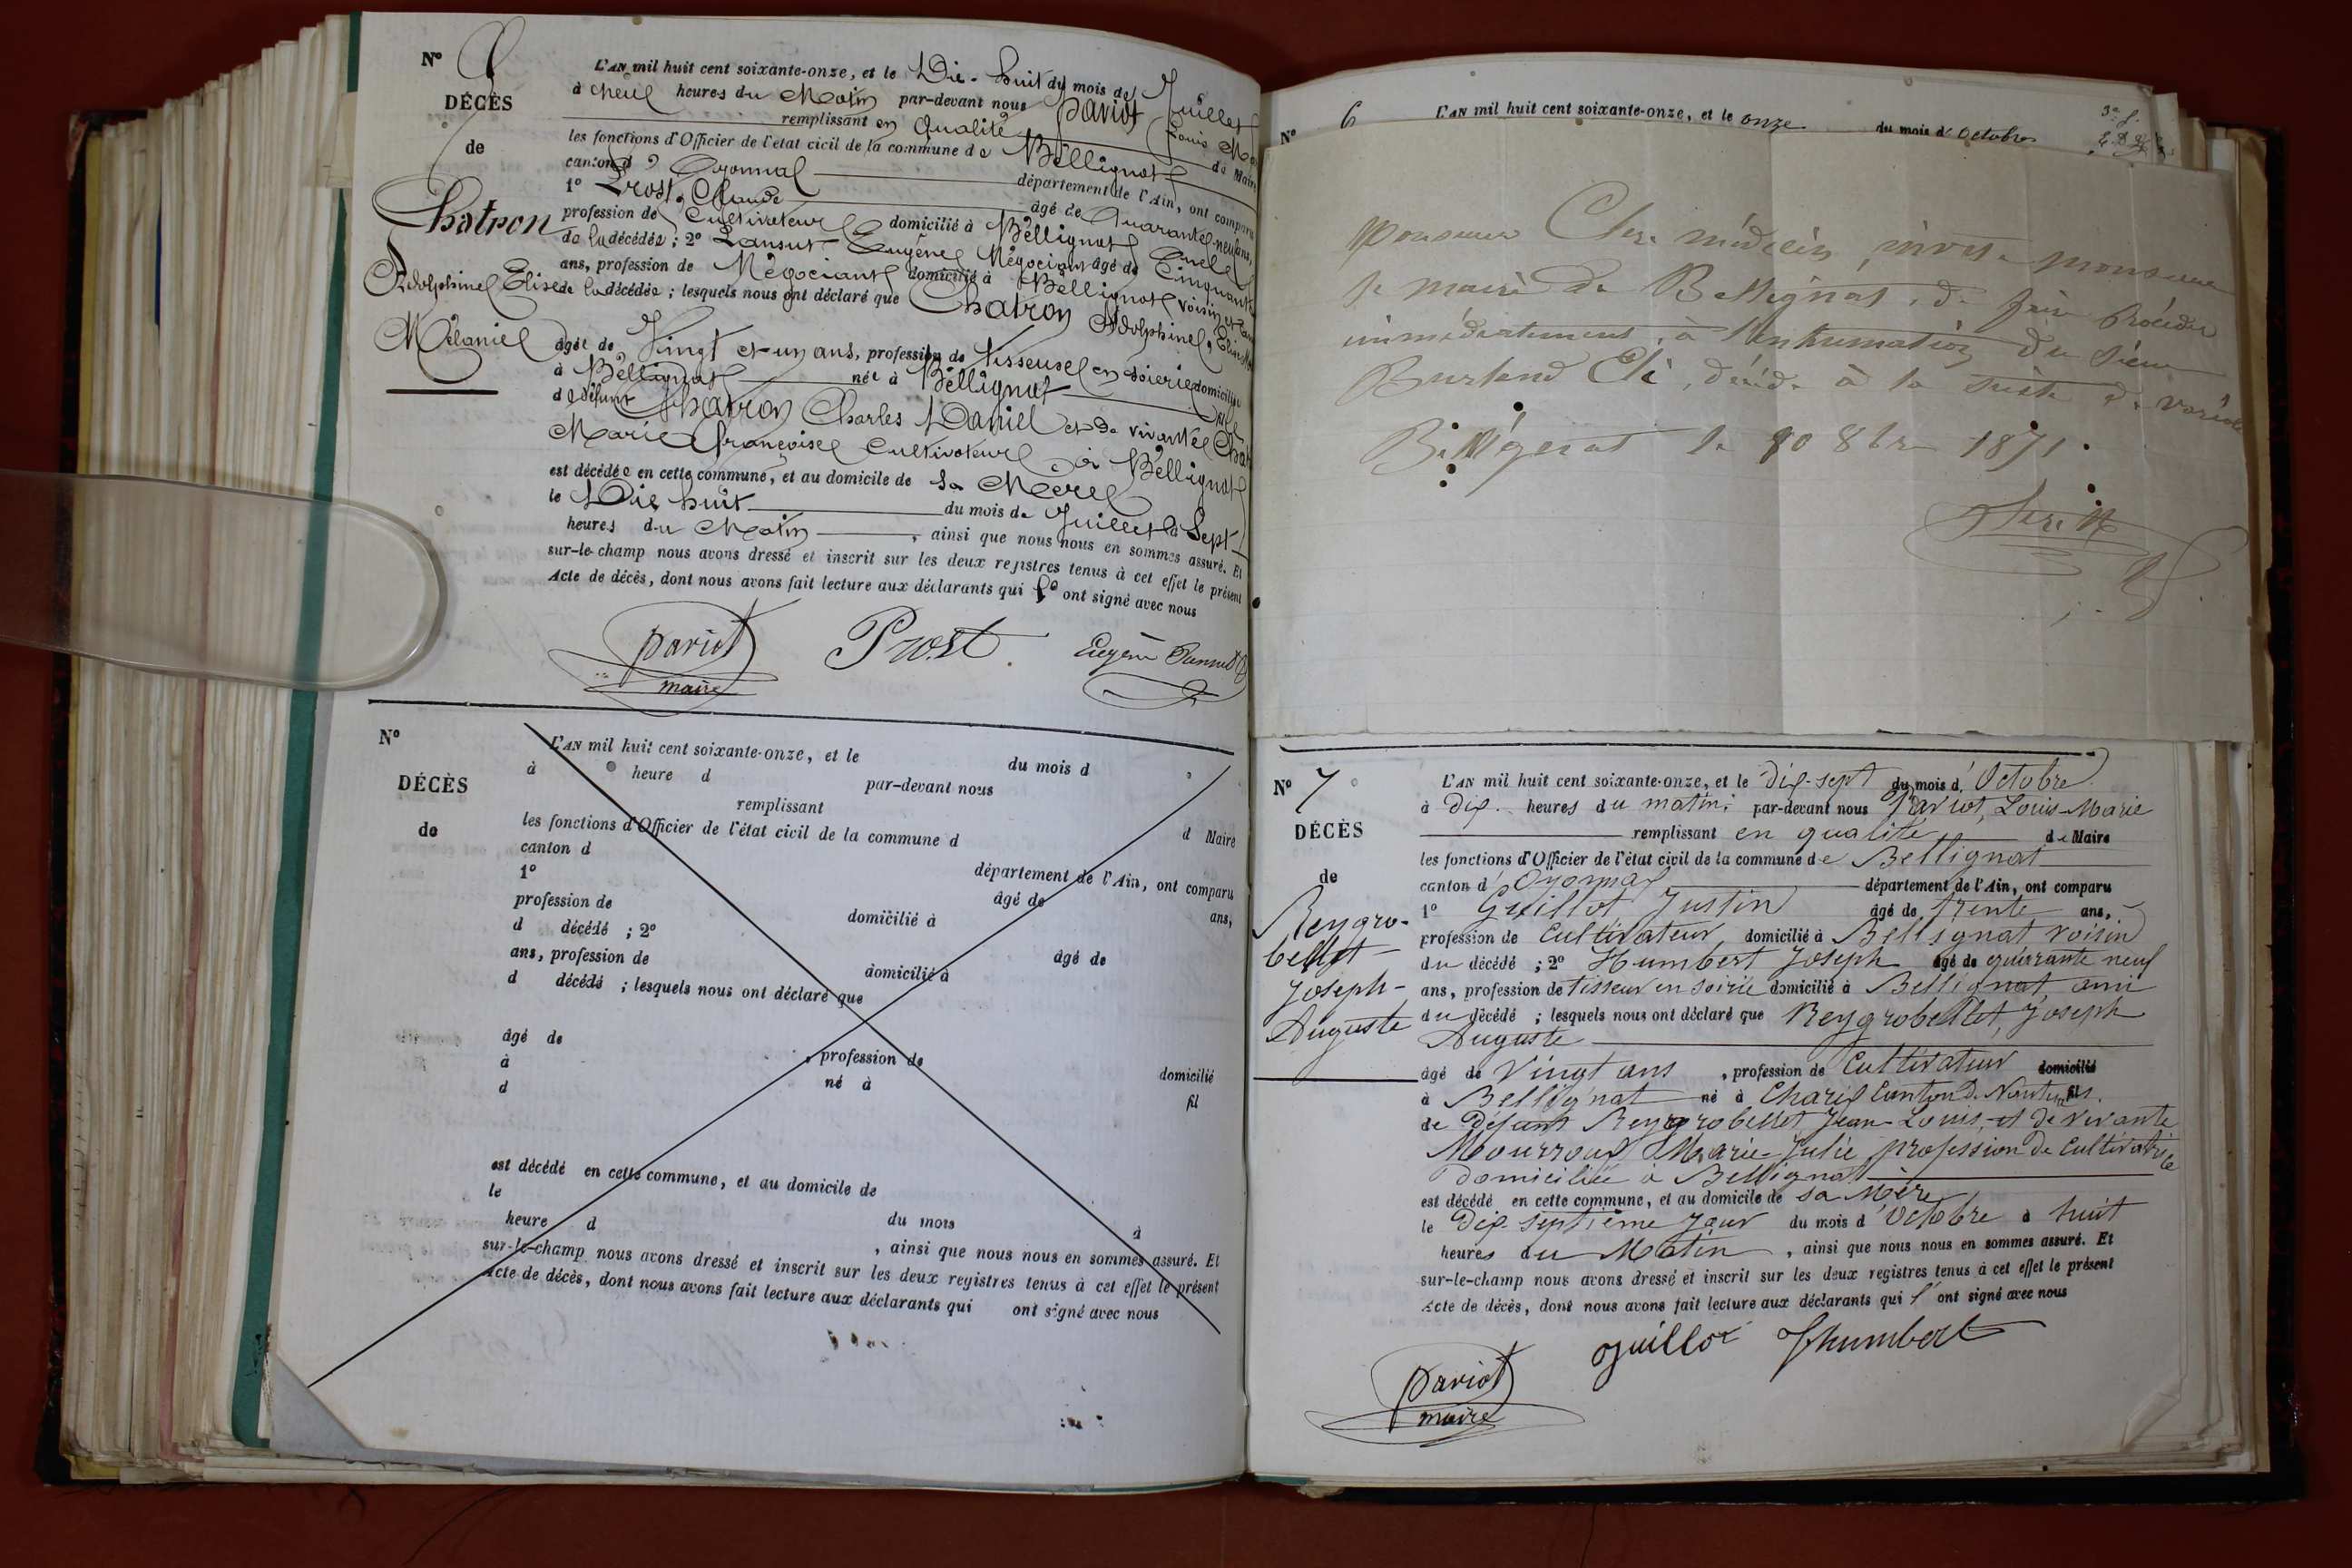 N°
DÉCÈS
de
Chatron
Adolphine Elise
Mélanie
L'AN mil huit cent soixante-onze, et le Dix-huit du mois de Juillet
à Neuf heures du Matin par-devant nous Pariot Louis Ma
remplissant en qualité de Maire
les fonctions d'Officier de l'état civil de la commune de Bellignat
canton d' Oyonnax département de l'Ain, ont comparu
1° Prost, Claude âgé de Quarante-neuf ans,
profession de Cultivateur domicilié à Bellignat
de la décédée ; 2° Eugène Négociant âgé de Cinquante
ans, profession de Négociant domicilié à Bellignat voisin et
de la décédée ; lesquels nous ont déclaré que Chatron Adolphine, Elise
âgée de Vingt et un ans, profession de tisseuse en soierie domiciliée
à Bellignat née à Bellignat fille
de défunt Chatron Charles Daniel et de vivante
Marie Françoise Cultivateur à Bellignat
est décédée en cette commune, et au domicile de Sa Mère
le Dix huit du mois de Juillet à Sept
heures du Matin, ainsi que nous nous en sommes assuré. Et
sur-le-champ nous avons dressé et inscrit sur les deux registres tenus à cet effet le présent
Acte de décès, dont nous avons fait lecture aux déclarants qui ont signé avec nous
Pariot Prost Eugène
maire
N°
DÉCÈS
de
L'AN mil huit cent soixante-onze, et le du mois d
à heure d par-devant nous
remplissant d Maire
les fonctions d'Officier de l'état civil de la commune d
canton d département de l'Ain, ont comparu
1° âgé de ans,
profession de domicilié à
d décédé ; 2° âgé de
ans, profession de domicilié à
d décédé ; lesquels nous ont déclaré que
âgé de , profession de domicilié
à né à fil
d
est décédé en cette commune, et au domicile de
le du mois à
heure d , ainsi que nous nous en sommes assuré. Et
sur-le-champ nous avons dressé et inscrit sur les deux registres tenus à cet effet le présent
Acte de décès, dont nous avons fait lecture aux déclarants qui ont signé avec nous
N° 6 L'AN mil huit cent soixante-onze, et le onze du mois d'Octobre
médecin, invite monsieur
le maire de Bellignat, de faire procéder
immédiatement, à l'inhumation du sieur
décédé à la suite de variole
Bellignat le 10 8bre 1871.
N° 7
DÉCÈS
de
Reygro-
bellet
Joseph-
Auguste
L'AN mil huit cent soixante-onze, et le dix-sept du mois d'Octobre
à dix heures du matin, par-devant nous Pariot, Louis-Marie
remplissant en qualité de Maire
les fonctions d'Officier de l'état civil de la commune de Bellignat
canton d'Oyonnax département de l'Ain, ont comparu
1° Guillot Justin âgé de trente ans,
profession de Cultivateur domicilié à Bellignat voisin
du décédé ; 2° Humbert Joseph âgé de quarante neuf
ans, profession de tisseur en soirie domicilié à Bellignat, ami
du décédé ; lesquels nous ont déclaré que Reygrobellet, Joseph
Auguste
âgé de Vingt ans , profession de Cultivateur domicilié
à Bellignat né à Charix Canton de Nantua fils
de Défunt Reygrobellet Jean-Louis, et de vivante
Mourroux Marie-Julie profession de Cultivatrice
domiciliée à Bellignat
est décédé en cette commune, et au domicile de sa Mère
le Dix-septième Jour du mois d'Octobre à huit
heures du Matin , ainsi que nous nous en sommes assuré. Et
sur-le-champ nous avons dressé et inscrit sur les deux registres tenus à cet effet le présent
Acte de décès, dont nous avons fait lecture aux déclarants qui ont signé avec nous
Guillot Jhumbert
Pariot
maire